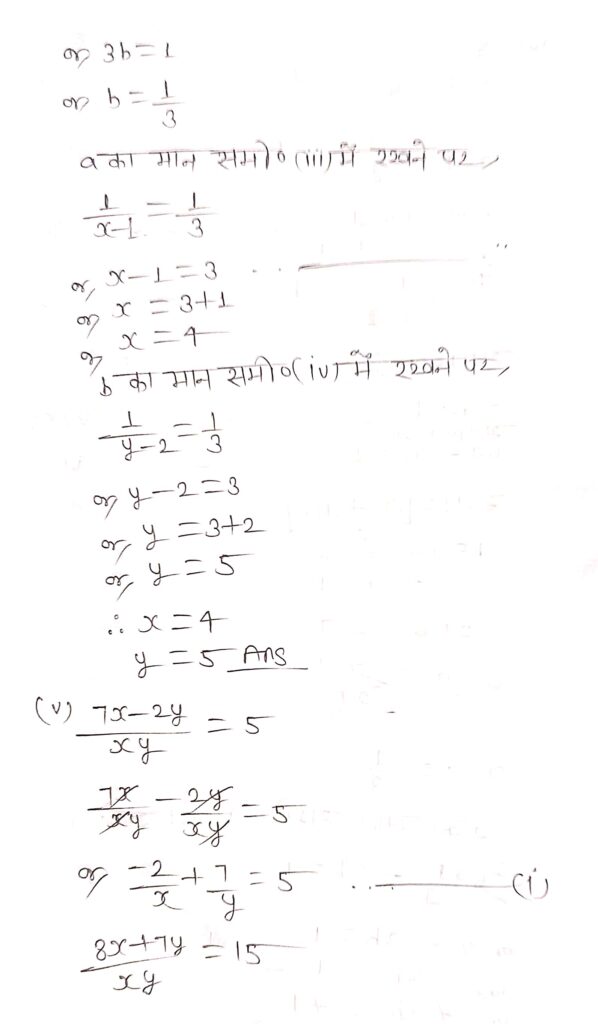 or, 3b = 1
or b = 1/3
a का मान समी० (iii) में रखने पर,
1/(x-1) = 1/3
or, x-1 = 3
or, x = 3+1
or, x = 4
b का मान समी० (iv) में रखने पर,
1/(y-2) = 1/3
or, y-2 = 3
or, y = 3+2
or, y = 5
∴ x = 4
y = 5 Ans
(v) (7x-2y)/xy = 5
7x/xy - 2y/xy = 5
or, -2/x + 7/y = 5 ..———(i)
(8x+7y)/xy = 15